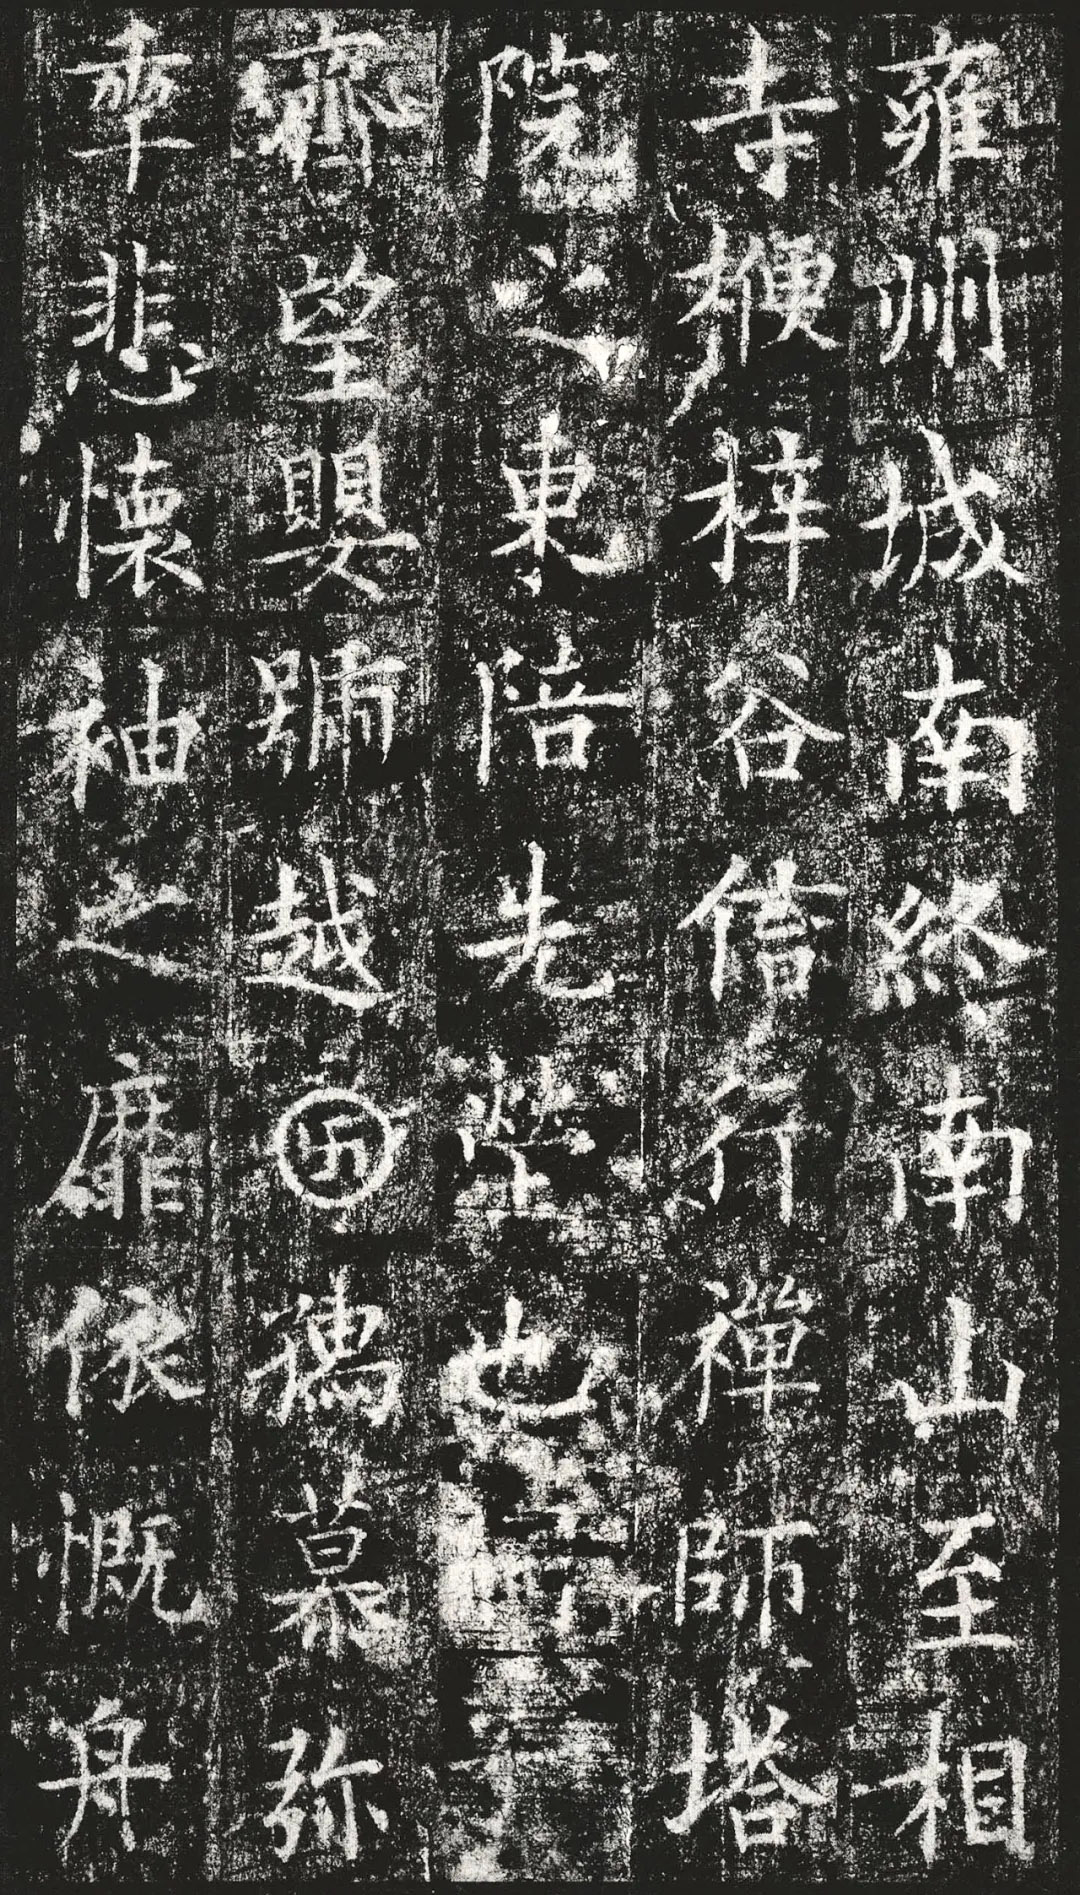 雍州城南終南山至相
寺楩梓谷信行禪師塔
院之東陪先塋也
齊望嬰越卍慕弥
率悲懷袖之靡依慨舟